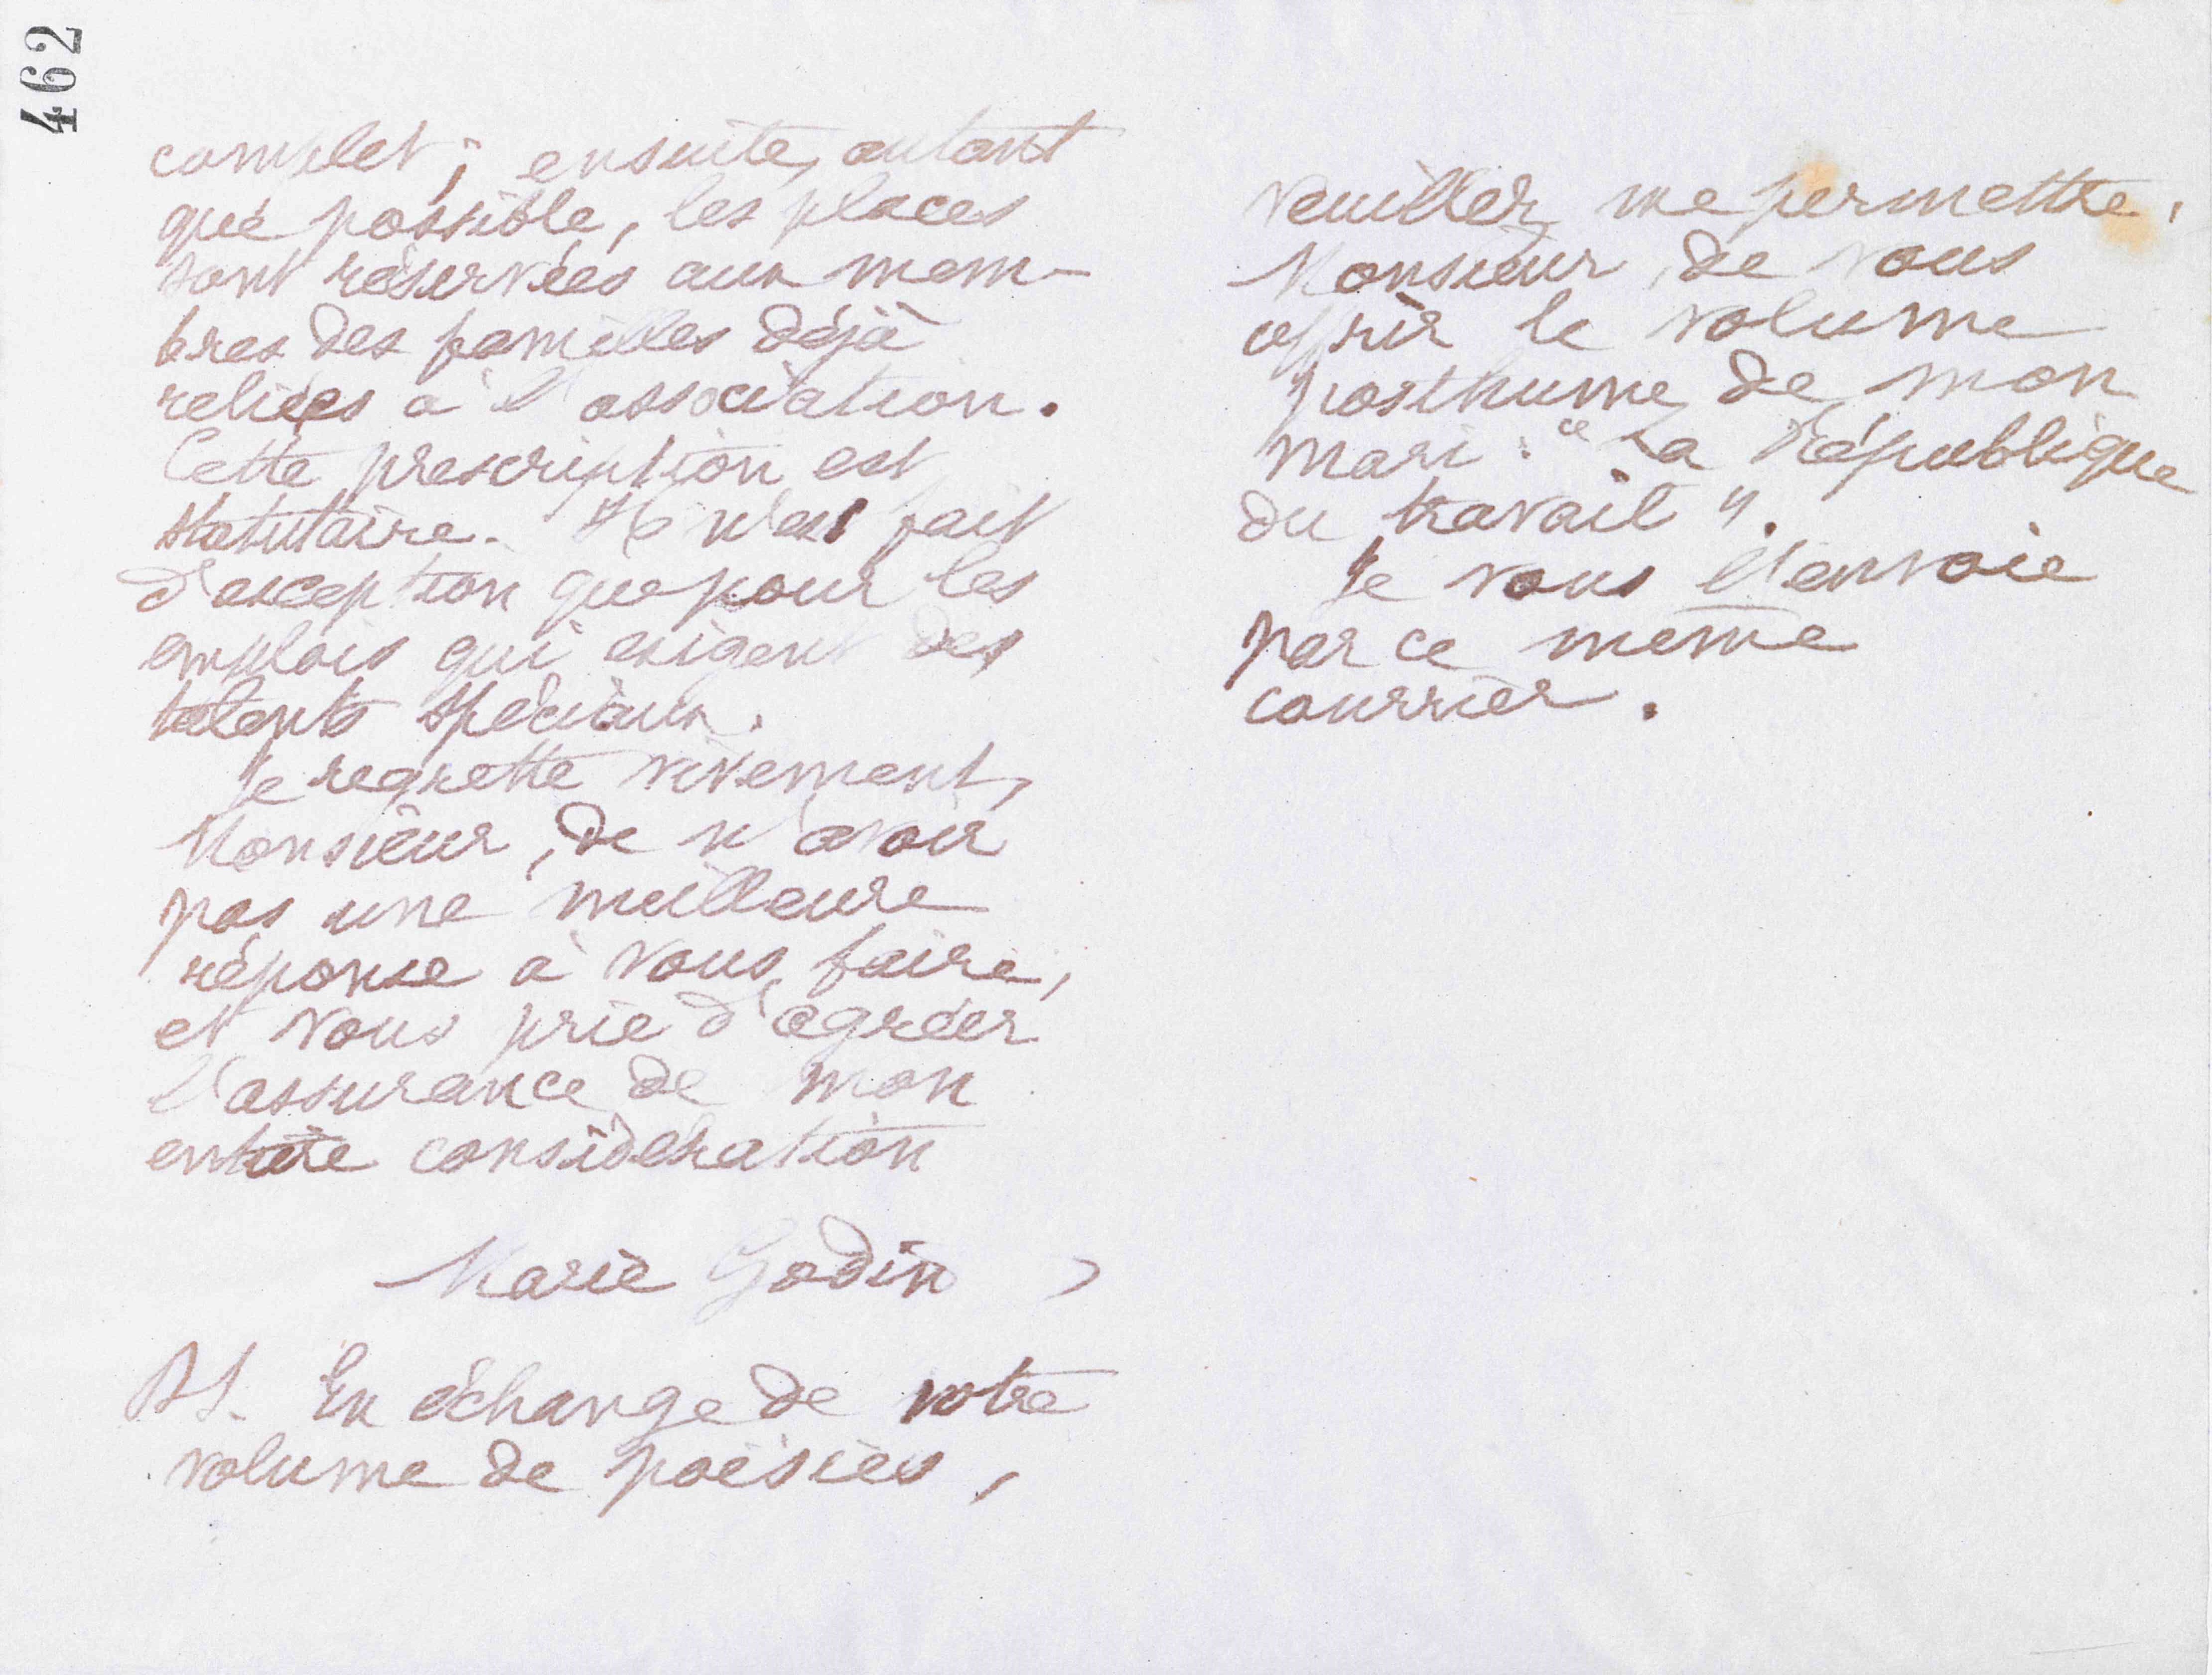 462
complet ; ensuite, autant
que possible, les places
sont réservées aux mem-
bres des familles déjà
reliées à l'association.
Cette prescription est
statutaire. Il n'est fait
d'exception que pour les
emplois qui exigent des
talents spéciaux.
Je regrette vivement,
Monsieur, de n'avoir
pas une meilleure
réponse à vous faire,
et vous prie d'agréer
l'assurance de mon
entière considération
Marie Godin
PS. En échange de votre
volume de poësies,
veuillez me permettre,
Monsieur, de vous
offrir le volume
posthume de mon
mari : "La République
du travail".
Je vous l'envoie
par ce même
courrier.